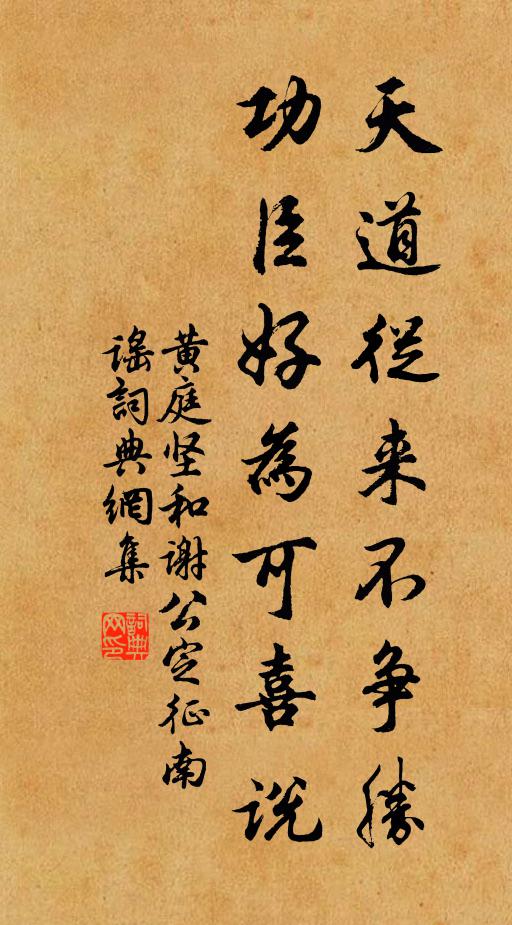 天道從来不争勝
功臣好為可喜説
黄庭坚和谢公定征南
谣詞典網集
詞典网印